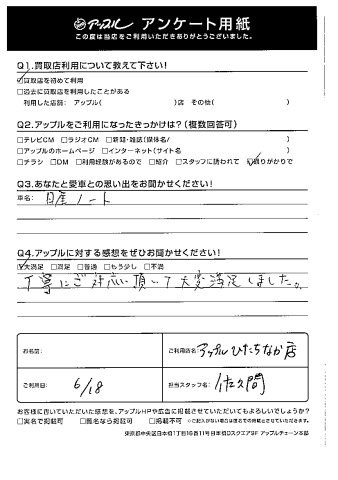 アップル アンケート用紙
この度は当店をご利用いただきありがとうございました。
Q1.買取店利用について教えて下さい!
☑買取店を初めて利用
□過去に買取店を利用したことがある
利用した店舗: アップル( )店 その他( )
Q2.アップルをご利用になったきっかけは?(複数回答可)
□テレビCM □ラジオCM □新聞・雑誌(媒体名/ )
□アップルのホームページ □インターネット(サイト名 )
□チラシ □DM □利用経験があるので □紹介 □スタッフに誘われて ☑通りがかりで
Q3.あなたと愛車との思い出をお聞かせください!
車名: 日産ノート
Q4.アップルに対する感想をぜひお聞かせください!
☑大満足 □満足 □普通 □もう少し □不満
丁寧にご対応頂いて大変満足しました。
お名前:
ご利用店名: アップルひたちなか店
ご利用日: 6/18
担当スタッフ名: 佐久間
お客様に書いていただいた感想を、アップルHPや広告に掲載させていただいてもよろしいでしょうか?
□実名で掲載可 □匿名なら掲載可 □掲載不可 ※ご記入がない場合は匿名での掲載とさせていただきます。
東京都中央区日本橋1丁目16番11号日本橋Dスクエア9F アップルチェーン本部